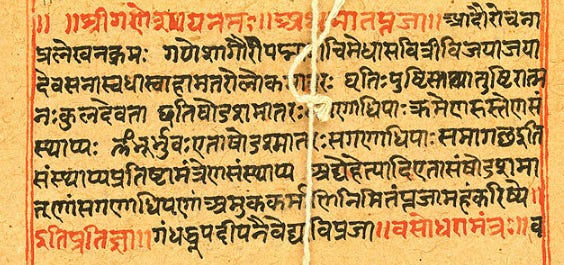 ॥ ॥ श्रीगणेशायनमः ॥ अथमातृपूजा ॥ आदौरोचना
प्रलेखनक्रमः गणेशगौरी मेधासावित्रीविजयाजया
देवसेनास्वधास्वाहामातरोलोक धृतिःपुष्टि तुष्टिरात्म
नःकुलदेवता षोडशमातरः गणाधिपाः क्रमेणहस्तेणसं
स्थाप्यः भूर्भुवः एताषोडशमातरः सगणाधिपाः समागछ इति
संस्थाप्यप्रतिष्टामंत्रेणसंस्थाप्य अद्येहेत्यादिएतासंषोडशमा
तृणांसगणाधिपणां अमुककर्म निमितंपूजामहंकरिष्ये ॥
इतिप्रतिज्ञा ॥ गंधधूपदीपनैवेद्य विप्रजा ॥ वसोधरामंत्रः ॥ व